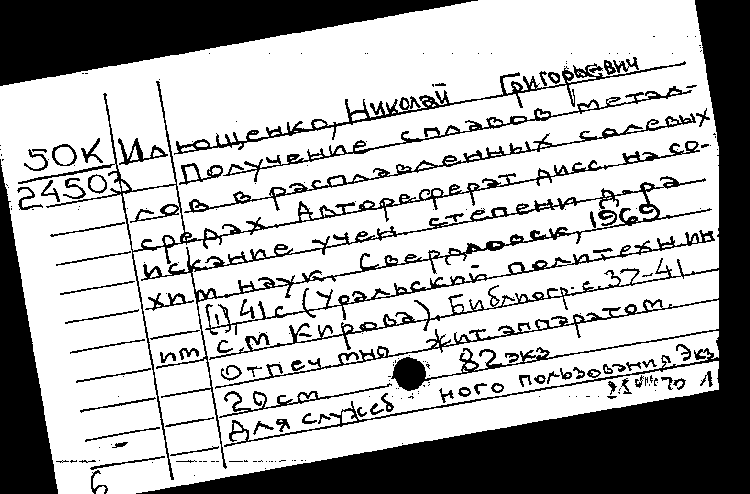 50К
24503
Илющенко, Николай Григорьевич
Получение сплавов метал-
лов в расплавленных солевых
средах. Автореферат дисс. на со-
искание учен. степени д-ра
хим. наук. Свердловск, 1969.
[1], 41 с (Уральский политехн ин-
ит С.М. Кирова). Библиогр: с. 37-41.
Отпеч мно жит. аппаратом.
20 см 82 экз
Для служеб ного пользования. Экз 1
70
б